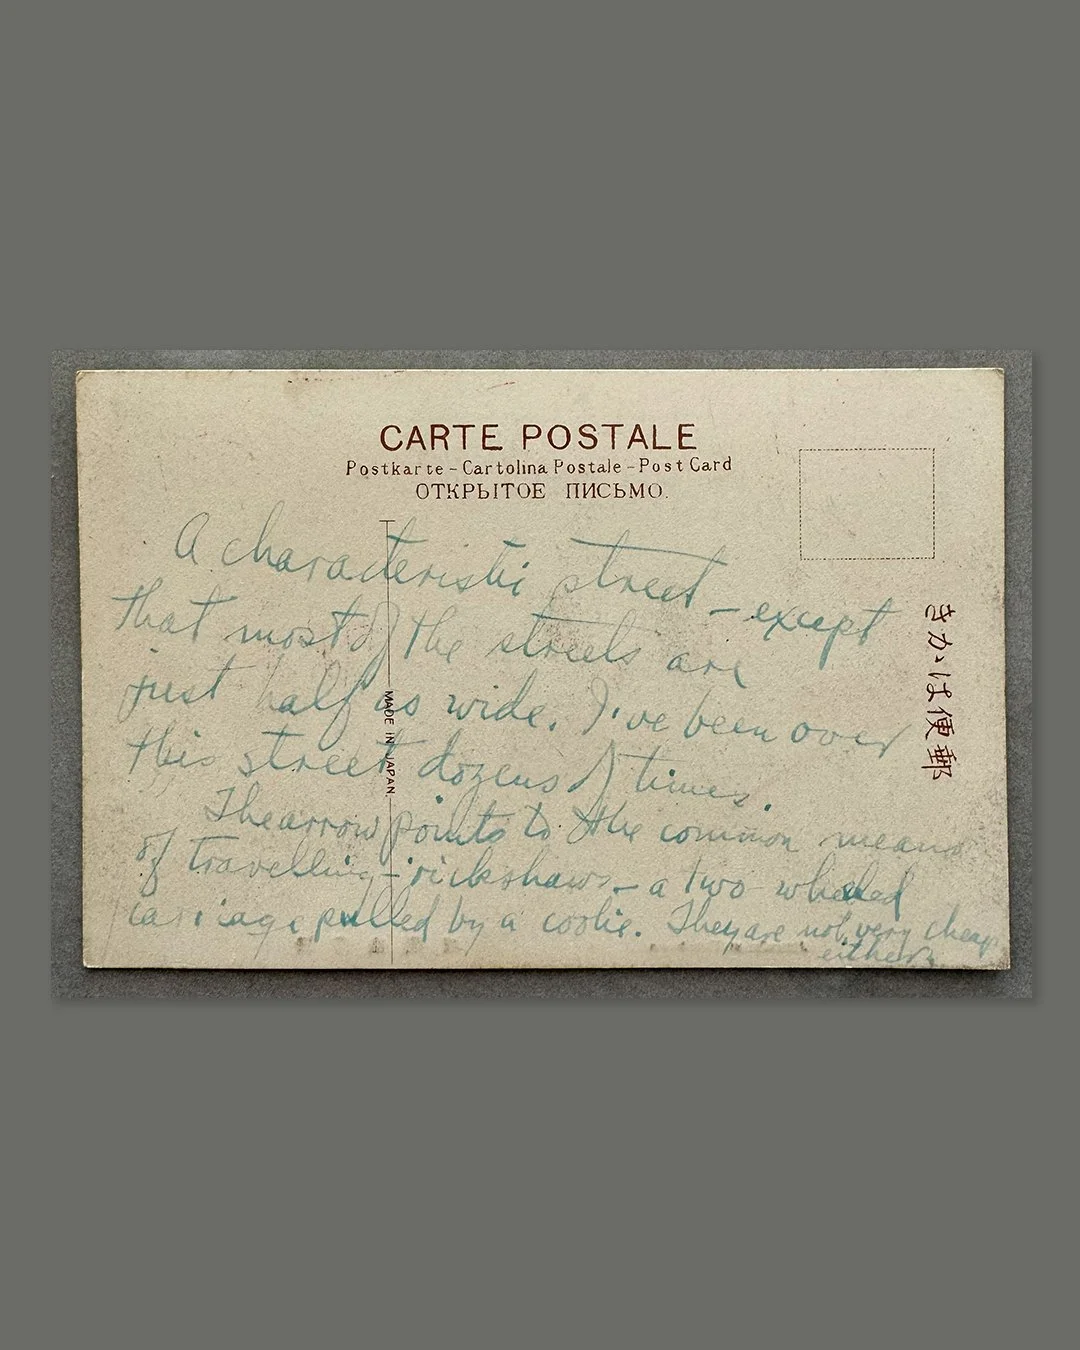 CARTE POSTALE
Postkarte - Cartolina Postale - Post Card
ОТКРЫТОЕ ПИСЬМО.
A characteristic street - except
that most of the streets are
just half as wide. I've been over
this street dozens of times.
The arrow points to the common means
of travelling - 'rickshaws - a two wheeled
carriage pulled by a coolie. They are not very cheap
either.
MADE IN JAPAN.
きかゝは便郵